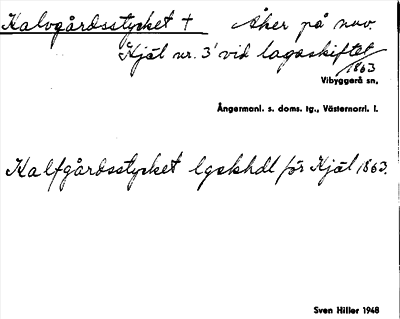 Kalvgårdsstycket † Åker på nuv.
Kjäl nr. 3¹ vid lagaskiftet
1863
Vibyggerå sn,
Ångermanl. s. doms. tg., Västernorrl. l.
Kalfgårdsstycket lgskhdl för Kjäl 1863.
Sven Hiller 1948